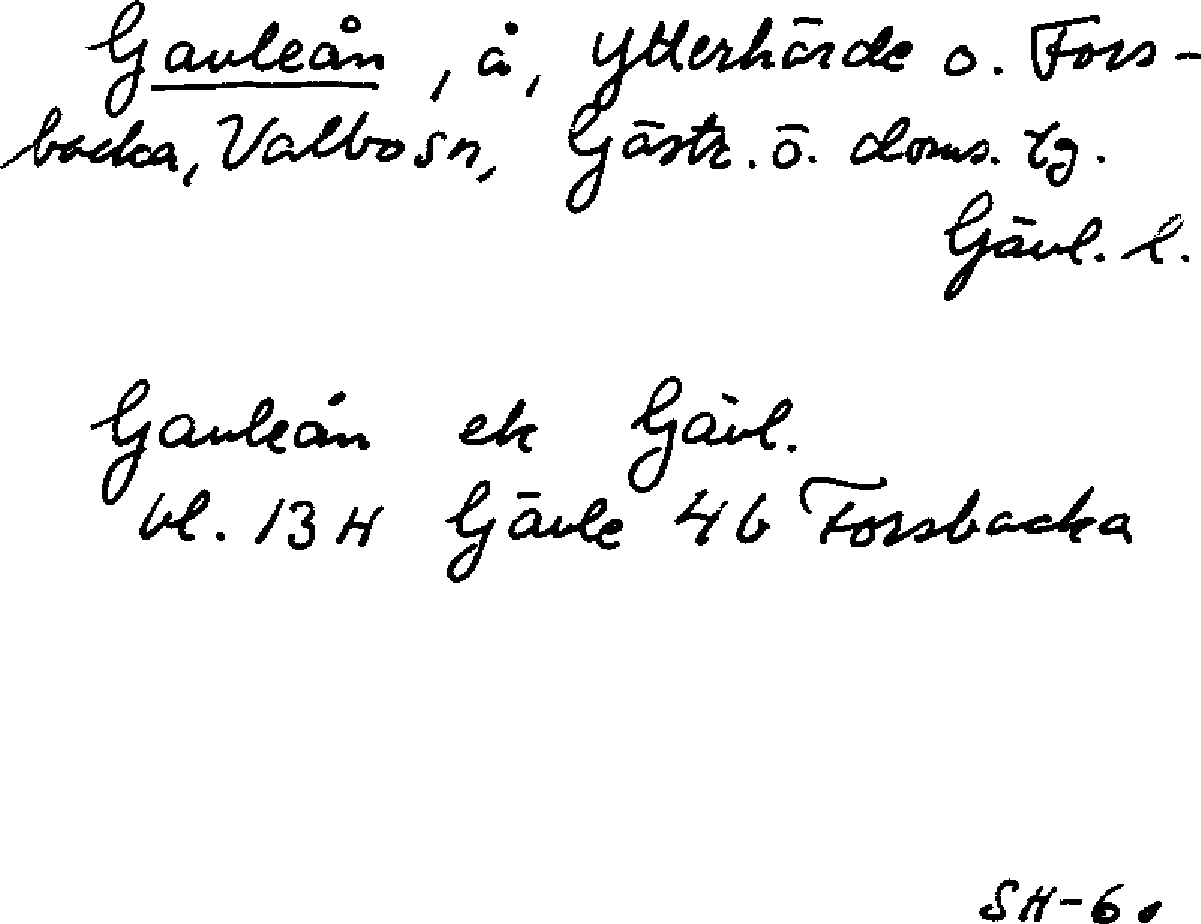 Gavleån, å, Ytterhärde o. Fors-
backa, Valbo sn, Gästr. ö. doms. tg.
Gävl. l.
Gavleån ek Gävl.
bl. 13H Gävle 4b Forsbacka
SH-6.